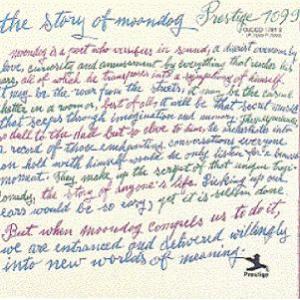 the story of moondog Prestige 7099
OJCCD 1741 2
moondog is a poet who versifies in sound, a diarist overcome by
love, curiosity and amusement by everything that reaches his
ears, all of which he transposes into a symphony of himself.
it may be the roar from the streets, it may be the casual
chatter in a woman, best of all, it will be that secret world
that seeps through imagination and memory.
so dull to the dull but so alive to him, he orchestrates into
a record of those enchanting conversations everyone
can hold with himself would he only listen for a
moment. They make up the script of that unique tragi-
comedy, the story of anyone's life. Picking up our
ears would be so easy, yet it is seldom done.
But when moondog compels us to do it,
we are entranced and delivered willingly
into new worlds of meaning.
Prestige